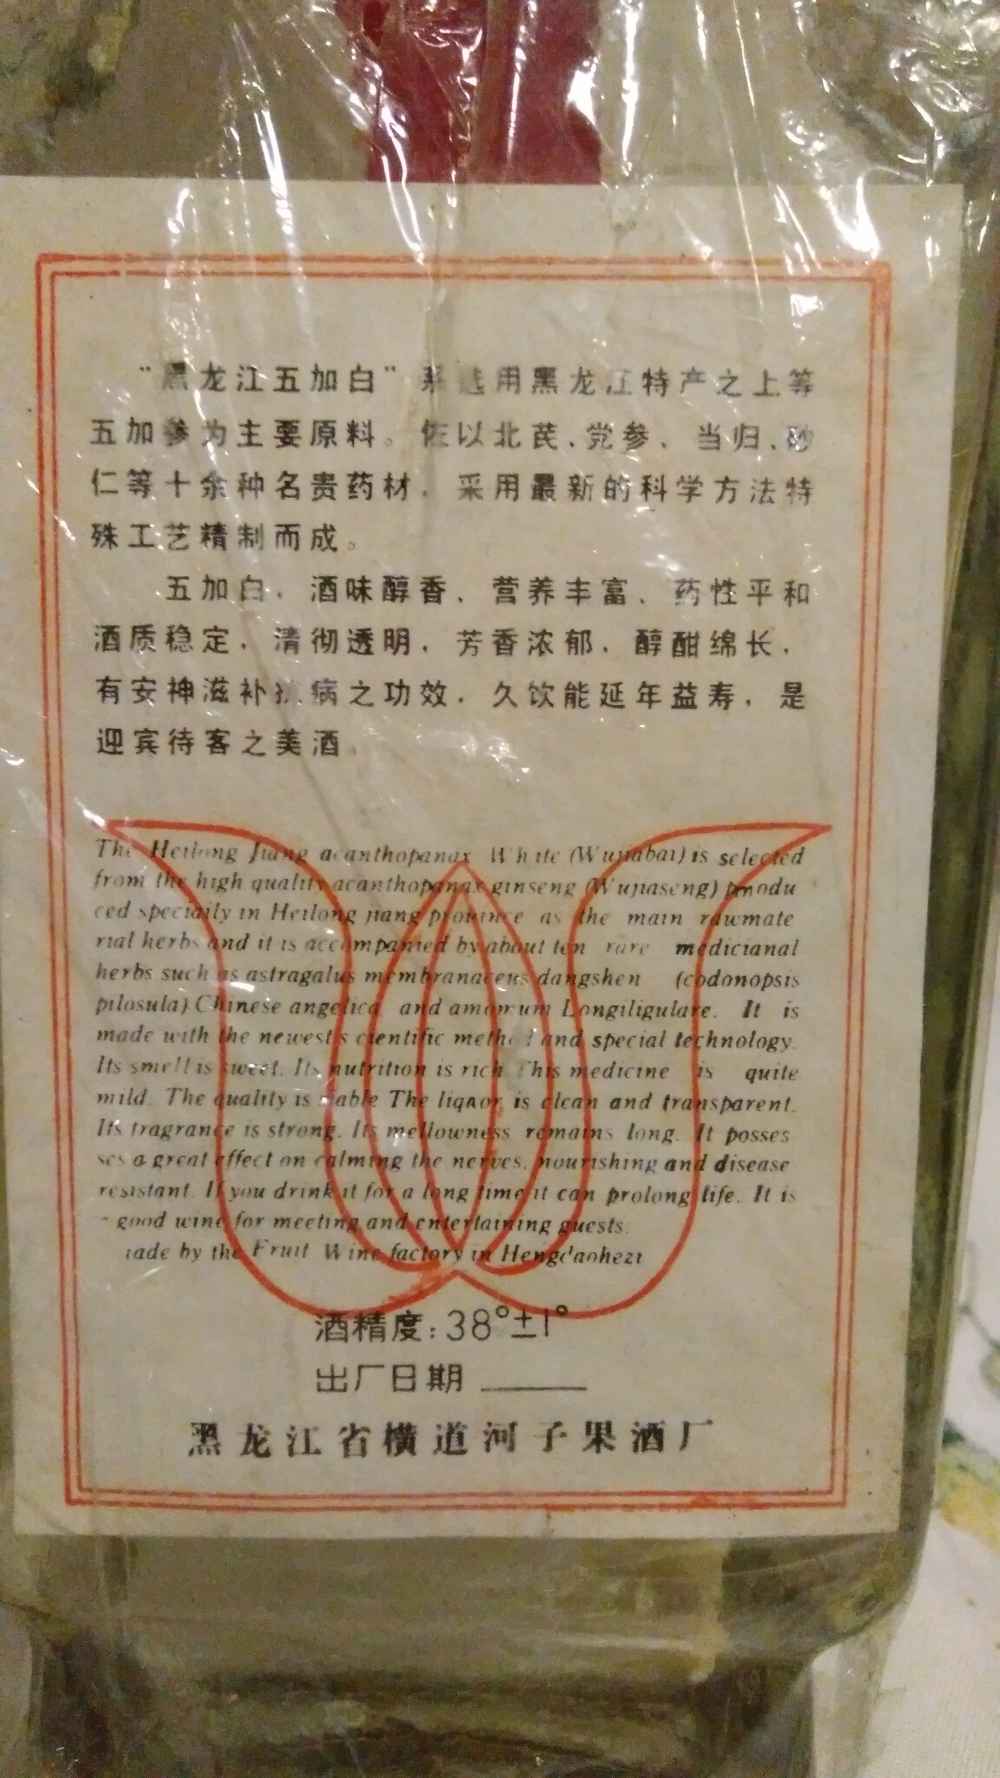 “黑龙江五加白”系选用黑龙江特产之上等
五加参为主要原料。佐以北芪、党参、当归、砂
仁等十余种名贵药材，采用最新的科学方法特
殊工艺精制而成。
五加白，酒味醇香、营养丰富、药性平和
酒质稳定，清彻透明，芳香浓郁，醇酣绵长，
有安神滋补抗病之功效，久饮能延年益寿，是
迎宾待客之美酒。
The Heilong Jiang acanthopanax White (Wujiabai) is selected
from the high quality acanthopanax ginseng (Wujiaseng) pmodu
ced specially in Heilong jiang province as the main rawmate
rial herbs and it is accompanied by about ten rare medicianal
herbs such as astragalus membranaceus dangshen (codonopsis
pilosula) Chinese angelica and amomum Longiligulare. It is
made with the newest s cientific method and special technology.
Its smell is sweet. Its nutrition is rich This medicine is quite
mild. The quality is stable The liquor is clean and transparent.
Its fragrance is strong. Its mellowness remains long. It posses
ses a great effect on calming the nerves, nourishing and disease
resistant. If you drink it for a long time it can prolong life. It is
good wine for meeting and entertaining guests.
ade by the Fruit Wine factory in Hengdaohezi
酒精度：38°±1°
出厂日期
黑龙江省横道河子果酒厂